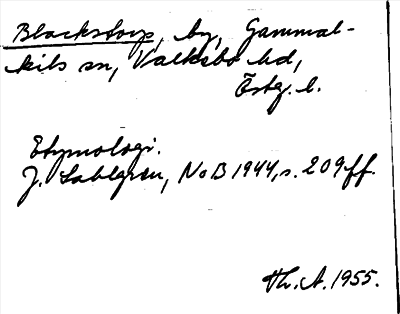 Blackstorp, by, Gammal-
kils sn, Valkebo hd,
Östg. l.
Etymologi.
J. Sahlgren, NoB 1944, s. 209 ff.
Th. A. 1955.